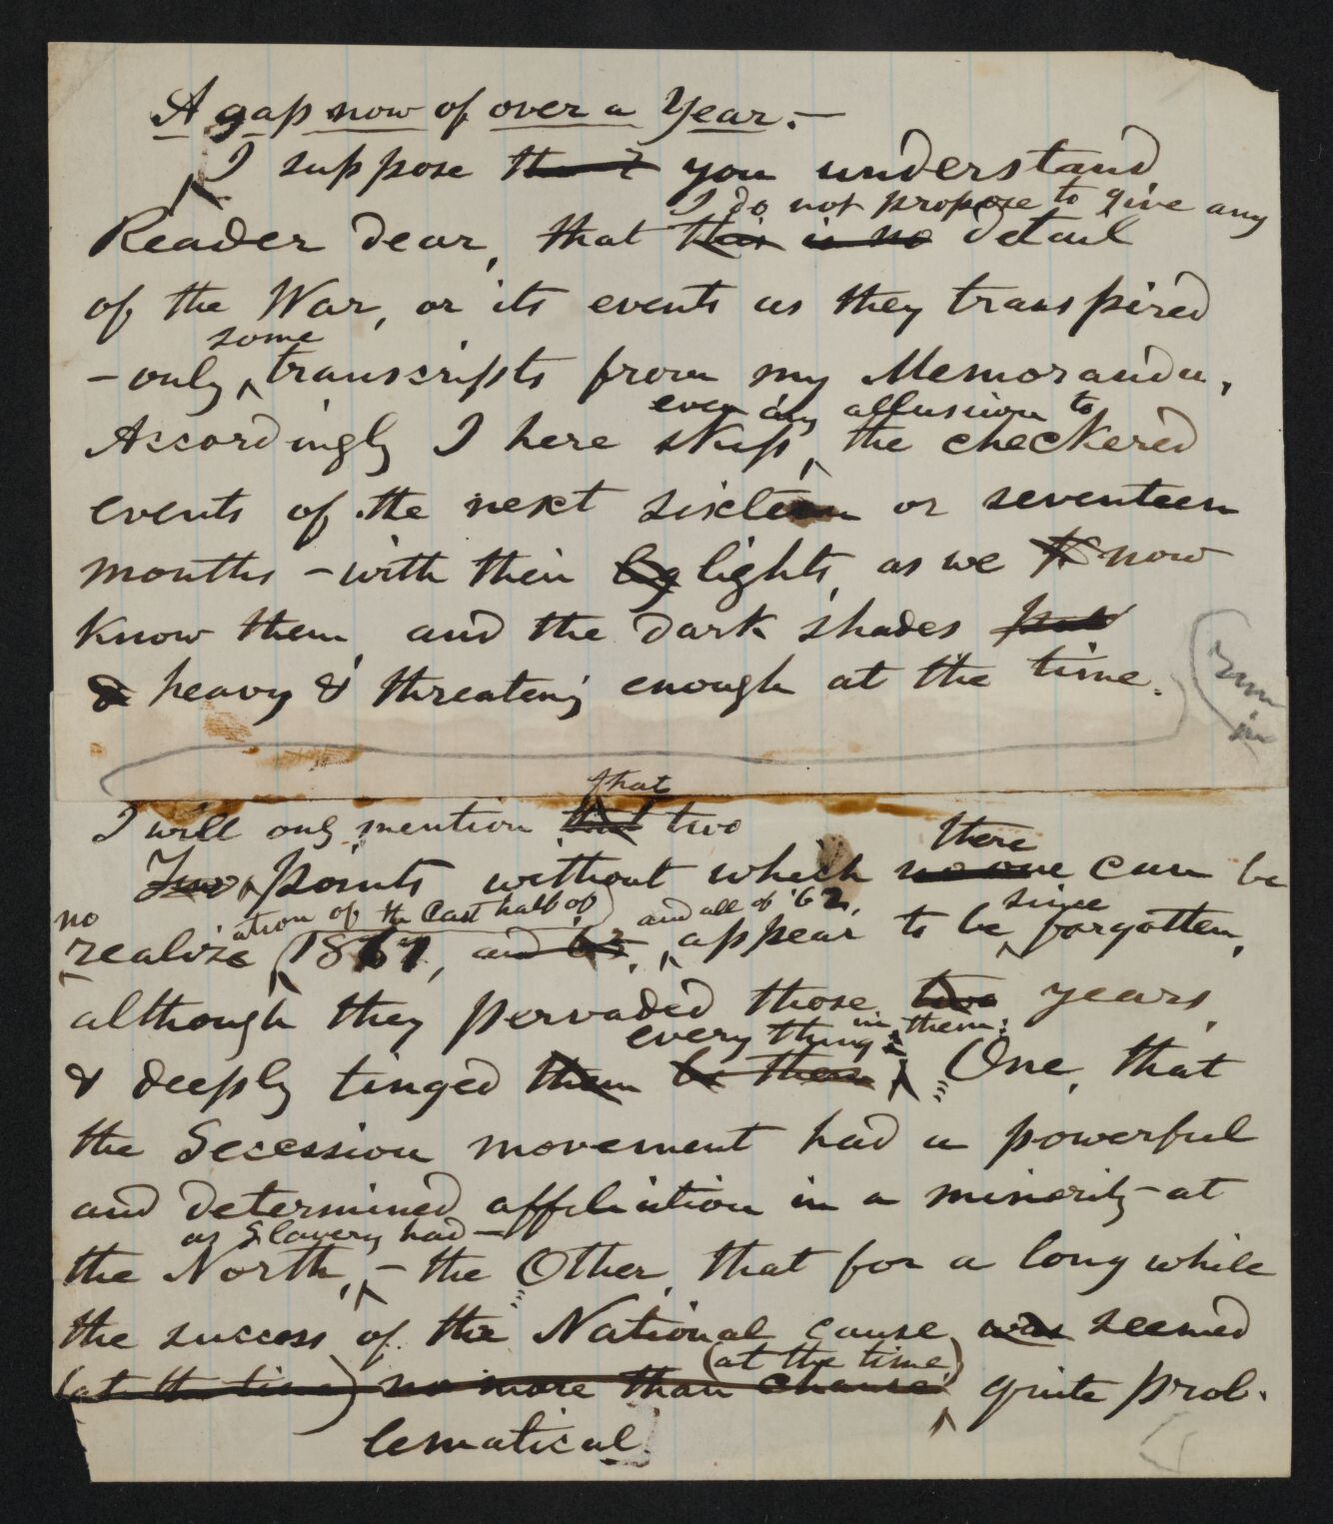 A gap now of over a Year.—
I suppose that you understand
I do not propose to give any
Reader dear, that this is no detail
of the War, or its events as they transpired
some
— only transcripts from my Memoranda,
even any allusion to
Accordingly I here skip, the checkered
events of the next sixteen or seventeen
months — with their lights, as we now
know them, and the dark shades
& heavy & threateng enough at the time.
run
in
that
I will only mention that two
there
Two points without which no one can be
no ation of the last half of and all of '62, since
realize 1861, and 62, appear to be forgotten,
although they pervaded those two years,
every thing in them:
& deeply tinged them be them One, that
the Secession movement had a powerful
and determined affiliation in a minority at
as Slavery had—
the North, — the Other, that for a long while
the success of the National cause was seemed
(at the time)
(at the time) no more than chance quite prob-
lematical.